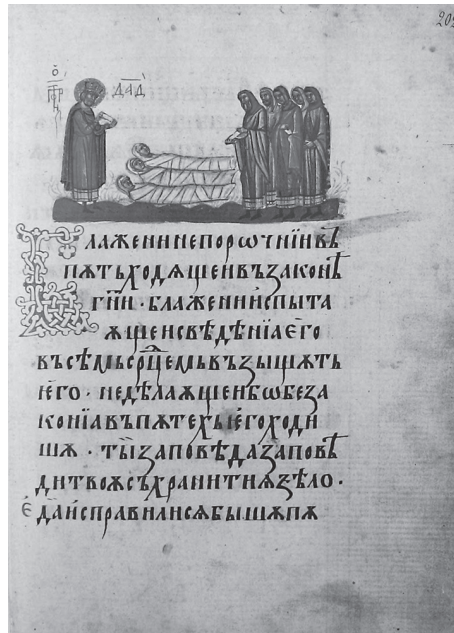 202
ѻ҃ ПРРК ДАД҃
Блажени непорѡчнїи въ
пѫть ходѧщеи въ законѣ
гн҃и · Блажени испыта
ѧщеи свѣдѣнїа єго
въсѣмь срⷣцемь възыщѫть
єго · не дѣлаѧщеи бѡ беза
конїа въ пѫтехь єго ходи
шѧ · Ты заповѣда заповѣ
ди твоѧ съхранити ѕѣло ·
Єда исправилисѧ бышѧ пѫ